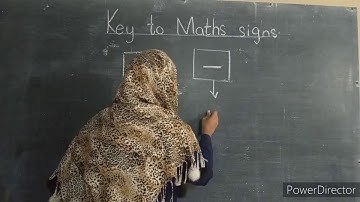 Key to Maths signs
—
PowerDirector